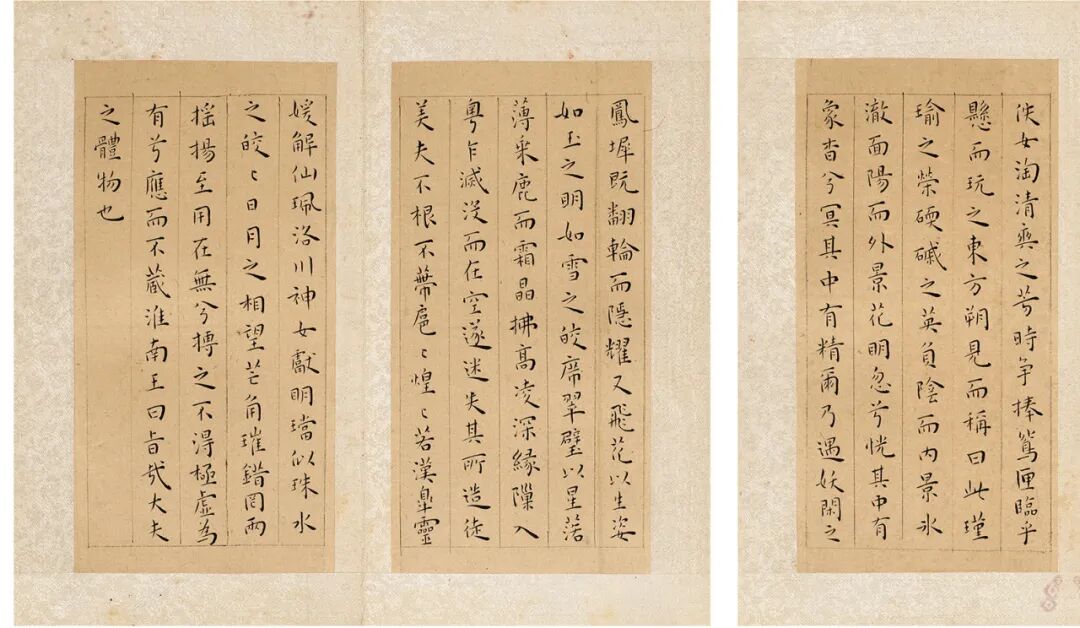 佚女淘清奥之芳時争捧鸞匣臨乎
懸而玩之東方朔見而稱曰此瑾
瑜之榮碝磩之英負陰而内景氷
澈面陽而外景花明忽兮恍其中有
象杳兮冥其中有精爾乃遇妖閑之
鳳墀既翻輪而隱耀又飛花以生姿
如玉之明如雪之皎席翠璧以星落
薄乗鹿而霜晶拂髙凌深緣隟入
粤乍滅没而在空遂迷失其所造徒
美夫不根不蔕扈〻惶〻若漢臯靈
媛解仙珮洛川神女獻明璫似珠水
之皎〻日月之相望芒角璀錯罔兩
揺揚至用在無兮摶之不淂極虛為
有兮應而不蔵淮南王曰旨哉大夫
之體物也